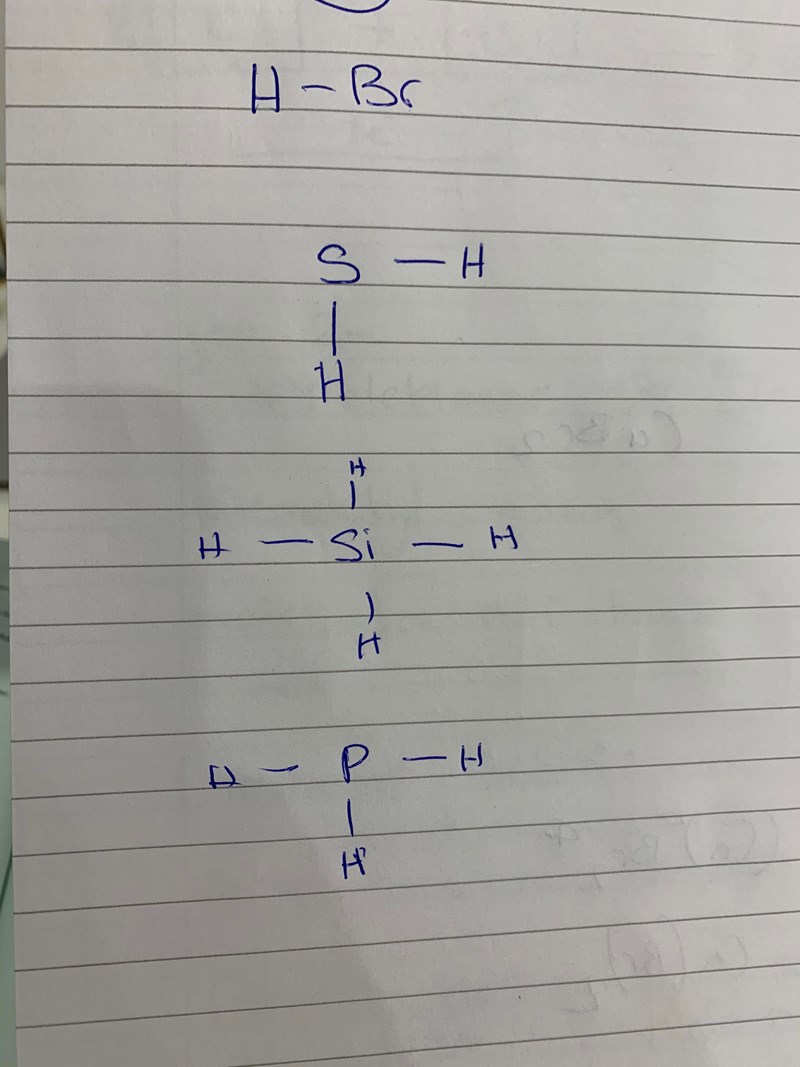 H - Br
S - H
|
H
H
|
H - Si - H
|
H
H - P - H
|
H